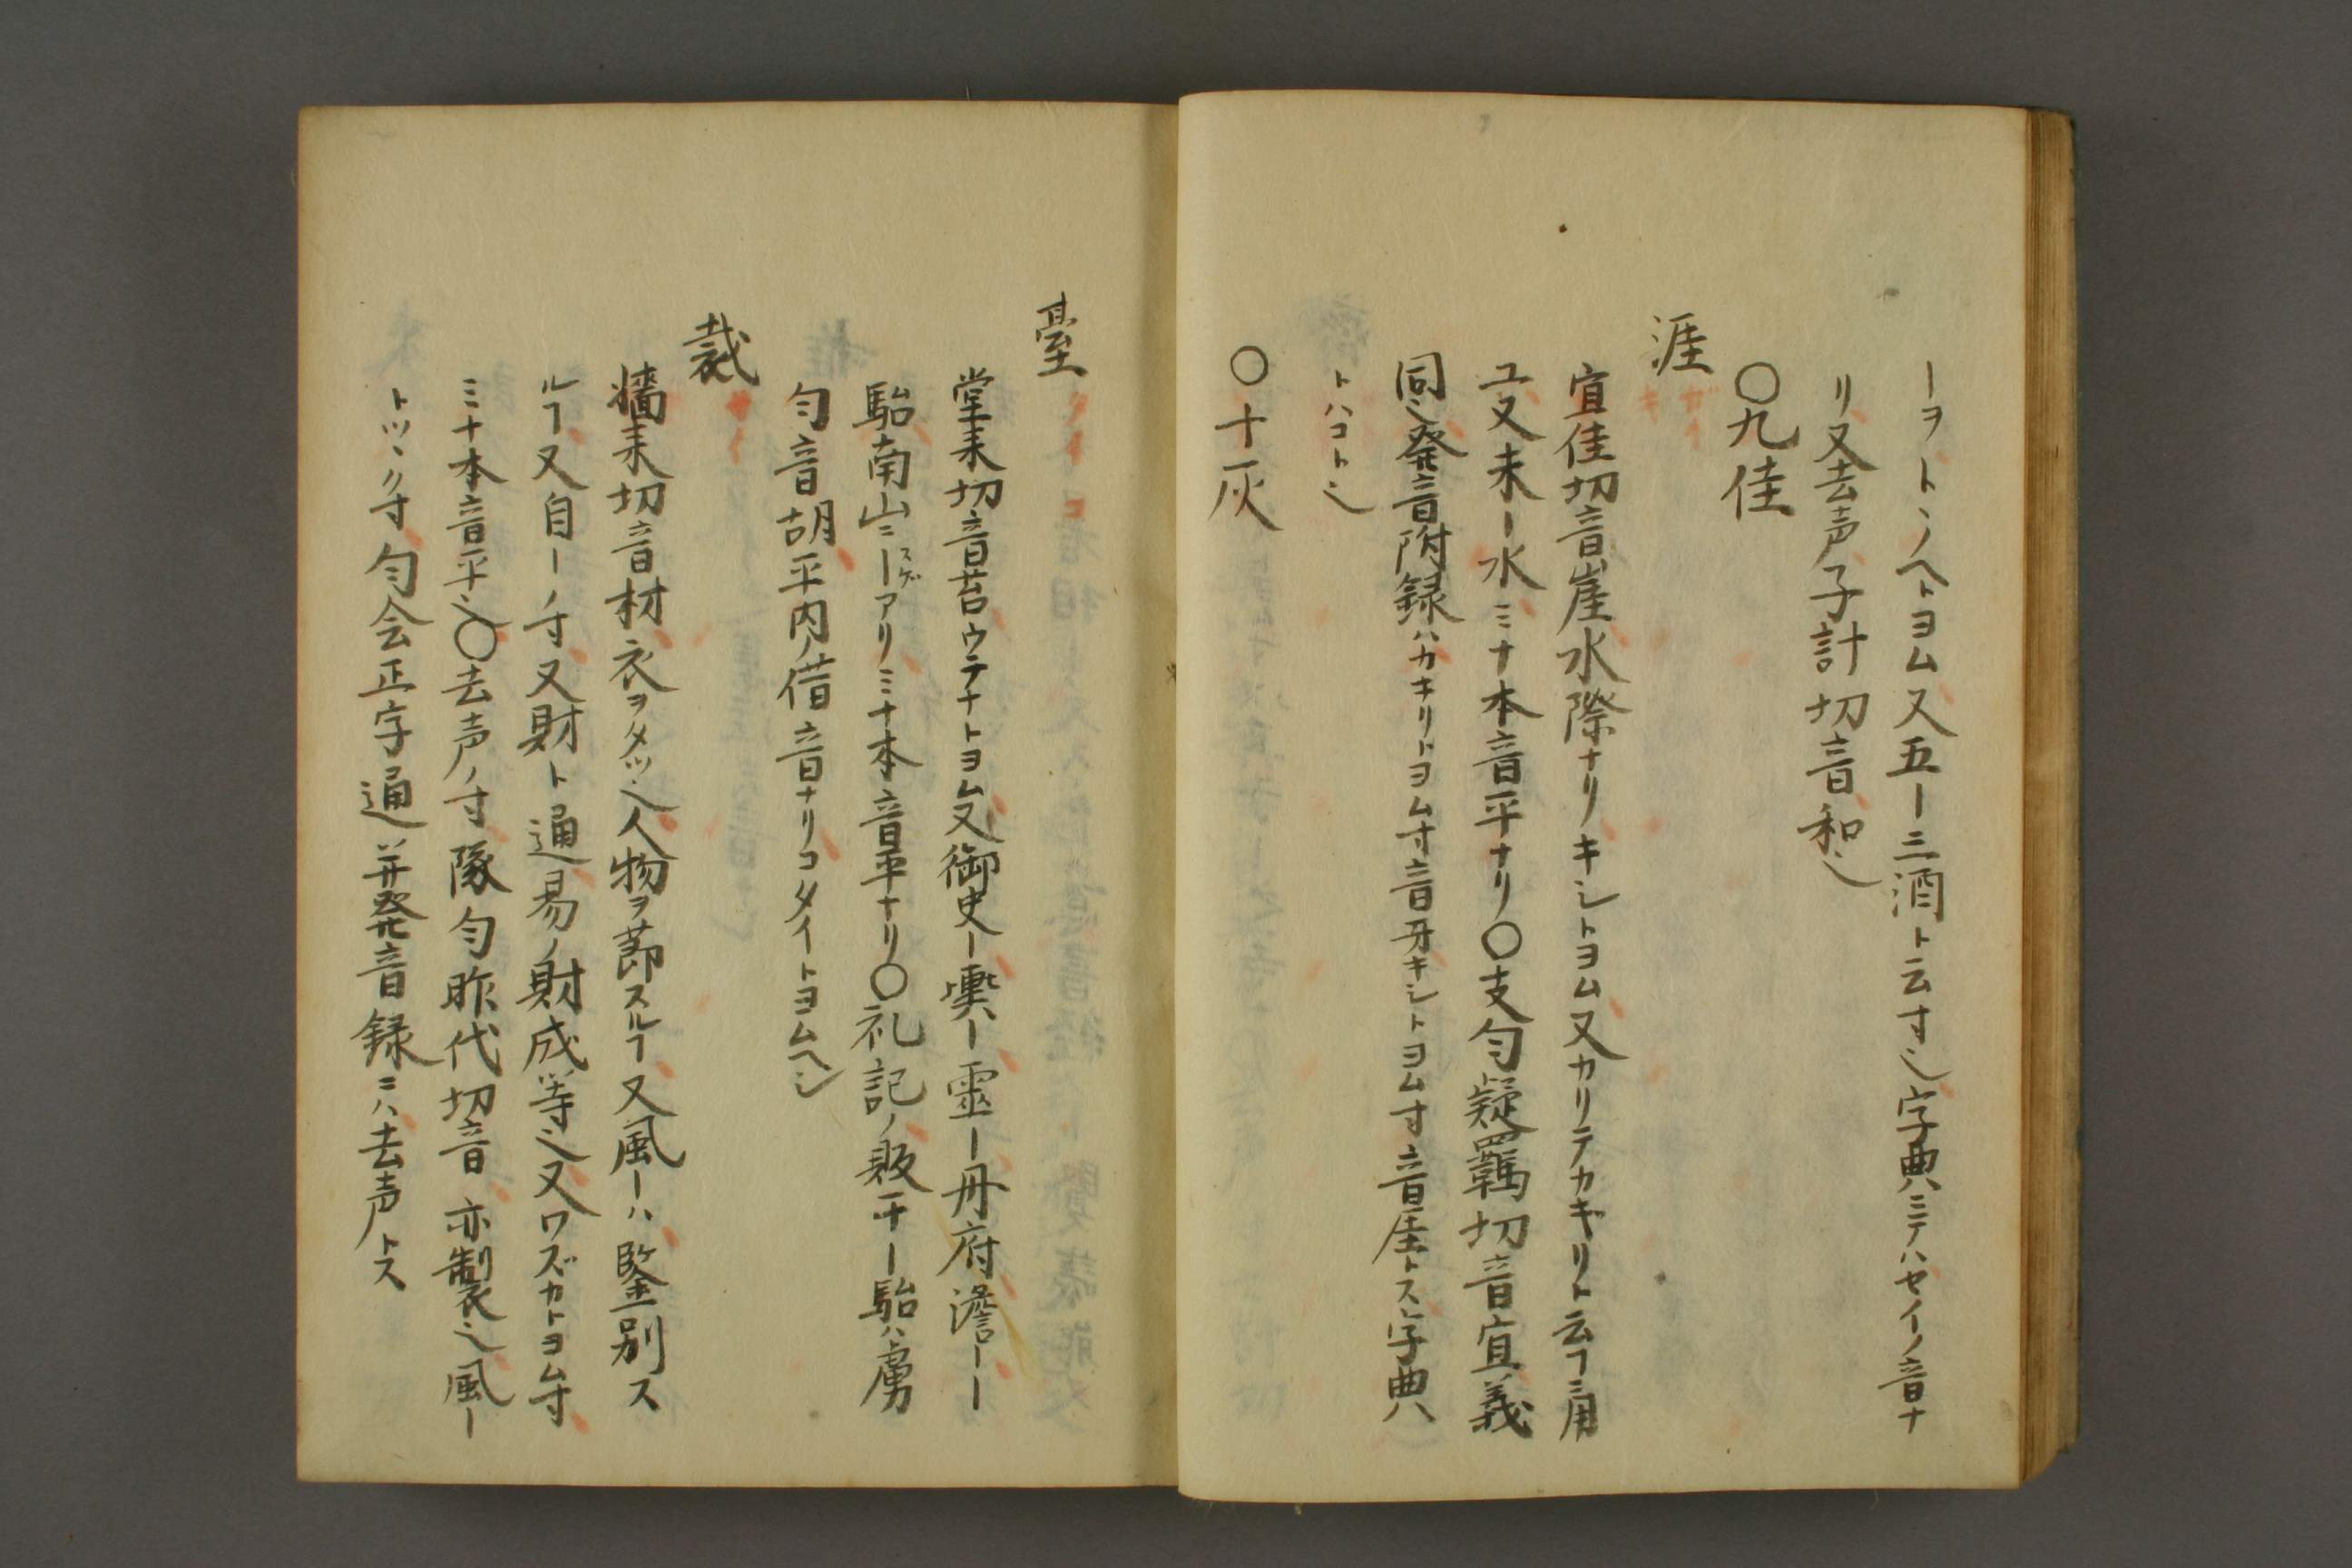 ーヲトヽノヘトヨム又五ー三酒ト云寸也字典ニテハセイノ音ナ
リ又去声子計切音和也
〇九佳
涯
宜佳切音崖水際ナリキシトヨム又カリテカキリト云フニ用
ユ又未ー水ミナ本音平ナリ〇支匀疑羈切音宜義
同也発音附録ハカキリトヨム寸音牙キシトヨム寸音厓トス字典ハ
トハコト也
〇十灰
臺
堂来切音苔ウテナトヨム又御史ー輿ー霊ー丹府澹ーー
駘南山ニーアリミナ本音平ナリ〇礼記ノ敗壬ー駘ハ虜
スゲ
匀音胡平内ノ借音ナリコタイトヨムヘシ
裁
牆来切音材衣ヲタツ也人物ヲ節スルフ又風ーハ鑒別ス
ルフ又自ーノ寸又財ト通易ノ財成等也又ワズカトヨム寸
ミナ本音平也〇去声ノ寸隊匀昨代切音 亦製也風ー
トツヽク寸匀会正字通并発音録ニハ去声トス